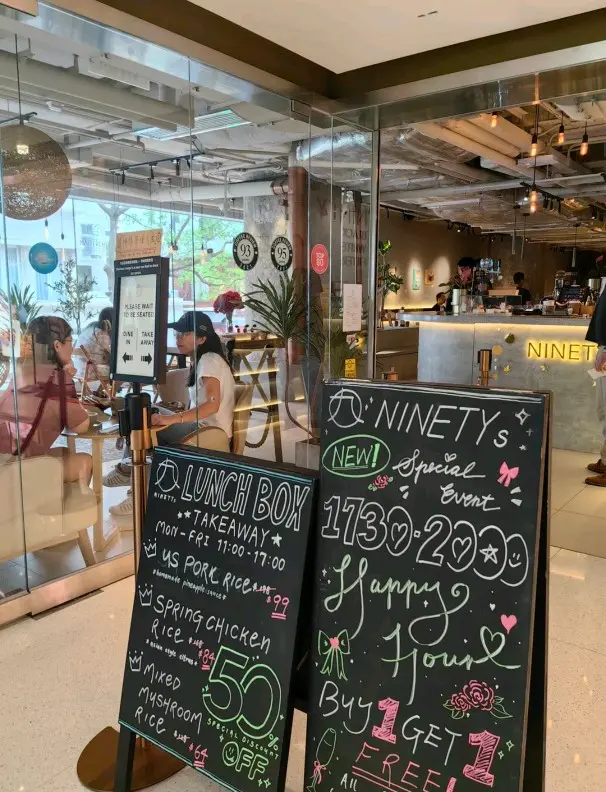 PLEASE WAIT
TO BE SEATED!
DINE
IN
TAKE
AWAY
93
95
TOP
NINET
NINETYs
LUNCH BOX
TAKEAWAY
MON-FRI 11:00-17:00
US PORK RICE
homemade pineapple sauce
$99
SPRING CHICKEN
RICE
asian style citrus
$84
MIXED
MUSHROOM
RICE
$64
50%
SPECIAL DISCOUNT
OFF
NINETYs
NEW!
Special
Event
1730-2000
Happy
Hour
Buy 1 GET 1
FREE!
All